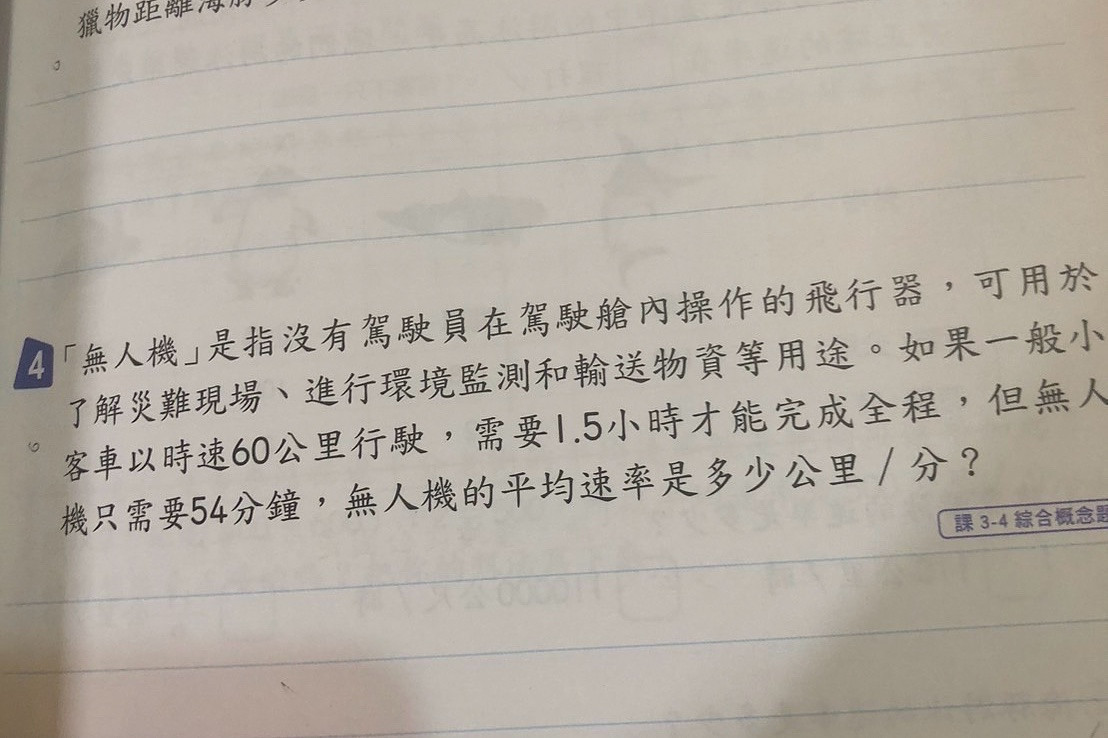 獵物距離海
4
「無人機」是指沒有駕駛員在駕駛艙內操作的飛行器，可用於
了解災難現場、進行環境監測和輸送物資等用途。如果一般小
客車以時速60公里行駛，需要1.5小時才能完成全程，但無人
機只需要54分鐘，無人機的平均速率是多少公里／分？
課 3-4 綜合概念題